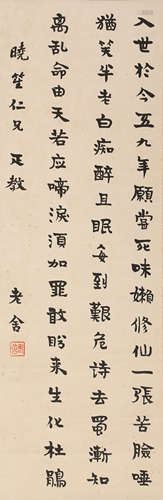 入世於今五九年願嘗死味嬾修仙一張苦臉唾
猶笑半老白痴醉且眠每到艱危詩去蜀漸知
离乱命由天若应啼淚須加罪敢盼来生化杜鵑
曉笙仁兄 正教
老舍